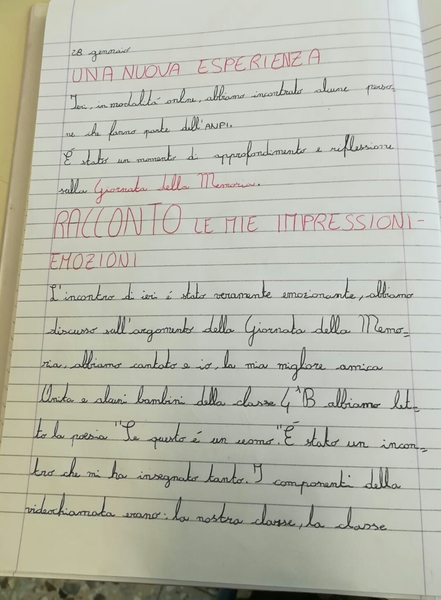 28 gennaio
UNA NUOVA ESPERIENZA
Ieri, in modalità online, abbiamo incontrato alcune perso=
ne che fanno parte dell'ANPI.
È stato un momento di approfondimento e riflessione
sulla Giornata della Memoria.
RACCONTO LE MIE IMPRESSIONI-
EMOZIONI
L'incontro di ieri è stato veramente emozionante, abbiamo
discusso sull'argomento della Giornata della Memo=
ria, abbiamo cantato e io, la mia migliore amica
e alcuni bambini della classe 4^B abbiamo let=
to la poesia "Se questo è un uomo." È stato un incon=
tro che mi ha insegnato tanto. I componenti della
videochiamata erano: la nostra classe, la classe